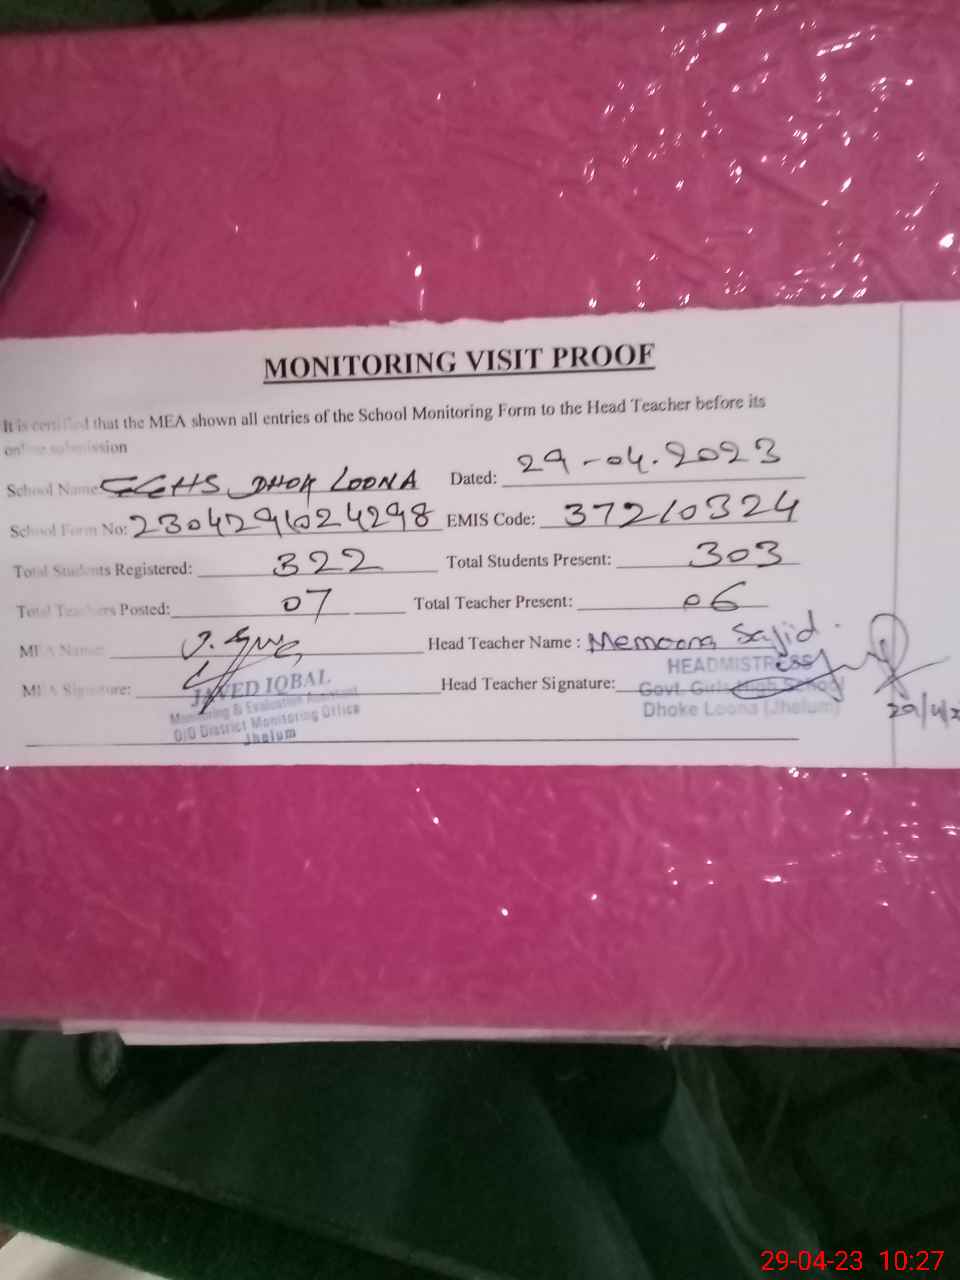 MONITORING VISIT PROOF
It is certified that the MEA shown all entries of the School Monitoring Form to the Head Teacher before its
online submission
School Name: GGHS DHOK LOONA Dated: 29-04.2023
School Form No: 2304291024298 EMIS Code: 37210324
Total Students Registered: 322 Total Students Present: 303
Total Teachers Posted: 07 Total Teacher Present: 06
MEA Name: Head Teacher Name : Memoona Sajid.
MEA Signature: Head Teacher Signature:
JAVED IQBAL
Monitoring & Evaluation Assistant
O/O District Monitoring Office
Jhelum
HEADMISTRESS
Govt. Girls High School
Dhoke Loona (Jhelum)
29-04-23 10:27